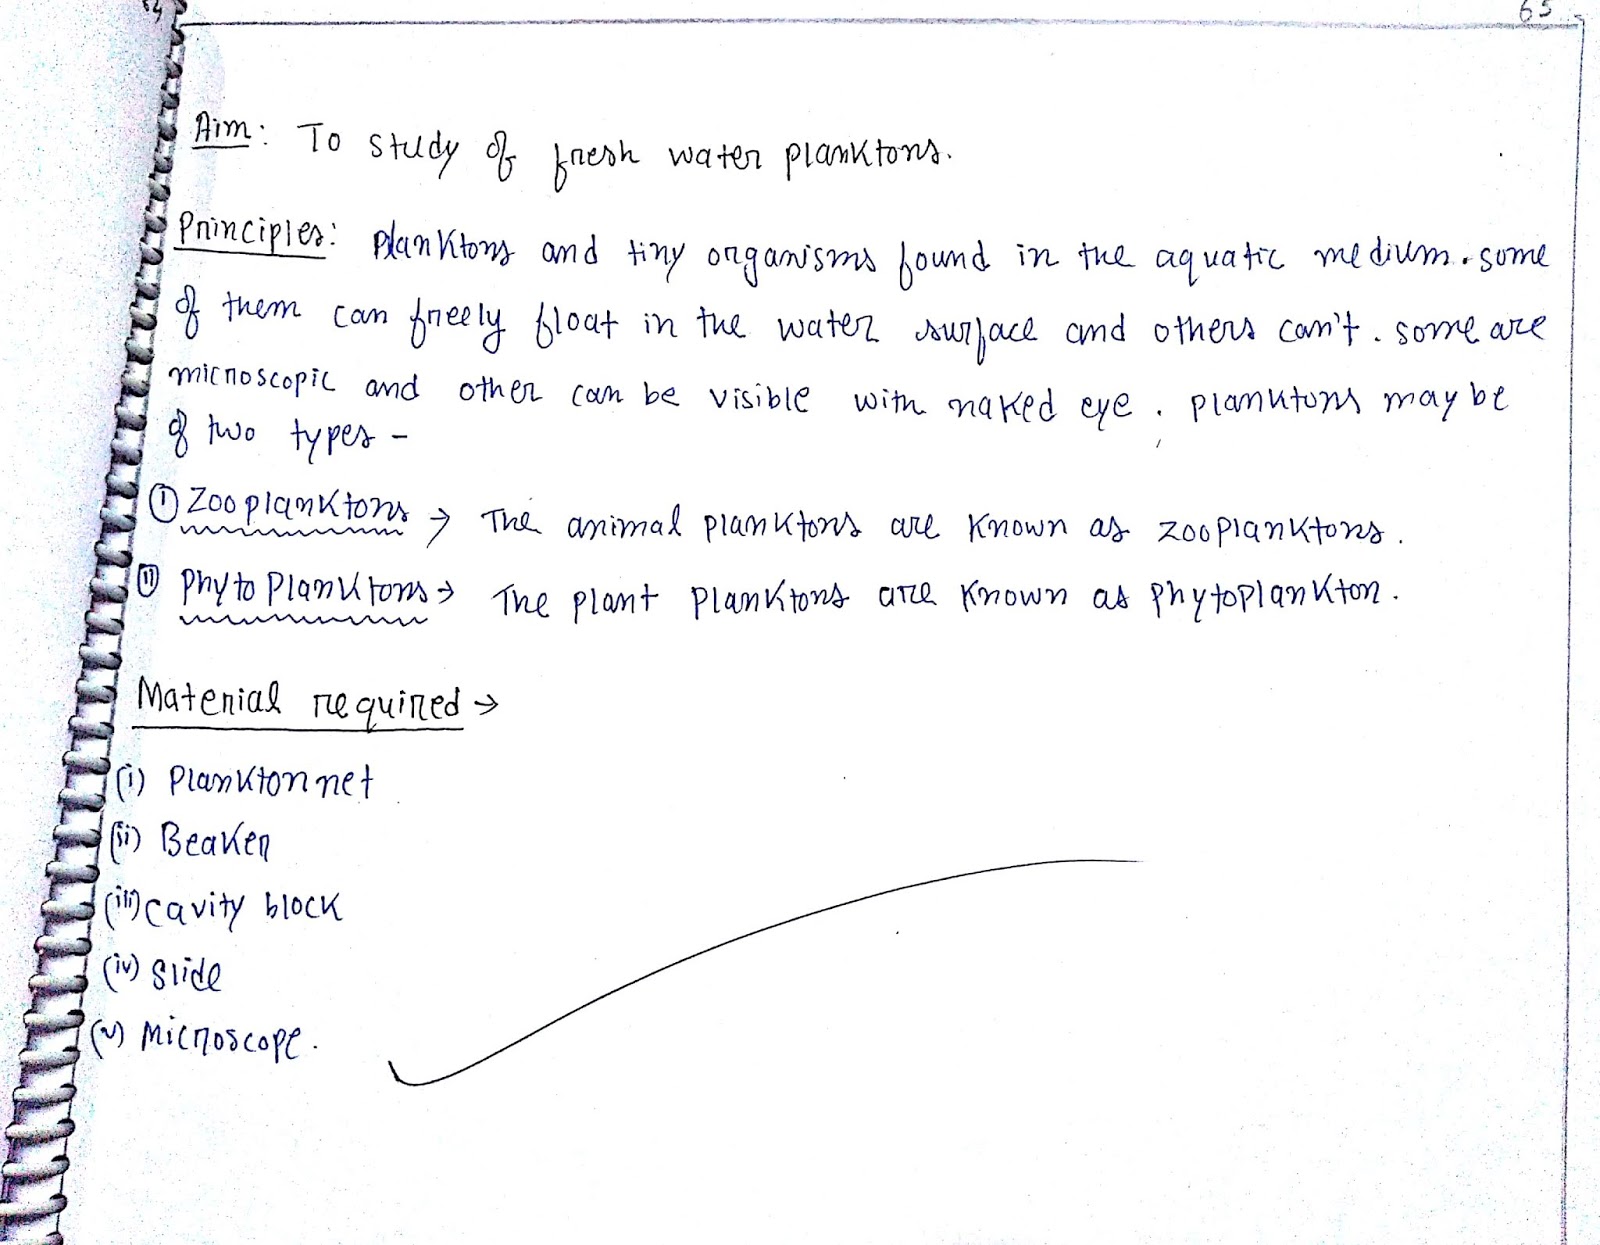 64
65
Aim: To study of fresh water planktons.
Principles: Planktons and tiny organisms found in the aquatic medium. some
of them can freely float in the water surface and others can't. some are
microscopic and other can be visible with naked eye. planktons may be
of two types -
(i) Zooplanktons → The animal planktons are known as zooplanktons.
(ii) Phyto Planktons → The plant planktons are known as phytoplankton.
Material required →
(i) Plankton net
(ii) Beaker
(iii) cavity block
(iv) slide
(v) Microscope.